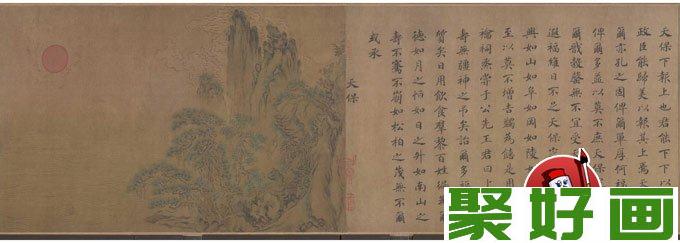 天保下報上也君能下下以
政臣能歸美以報其上焉天
爾亦孔之固俾爾單厚何福
俾爾多益以莫不庶天保
爾戩穀罄無不宜受
遐福維日不足天保
興如山如阜如岡如陵
至以莫不增吉蠲為饎是用
禴祠烝嘗于公先王君曰
壽無疆神之弔矣詒爾多
質矣日用飲食羣黎百姓
德如月之恒如日之升如南山之
壽不騫不崩如松柏之茂無不爾
或承
天保
聚好画